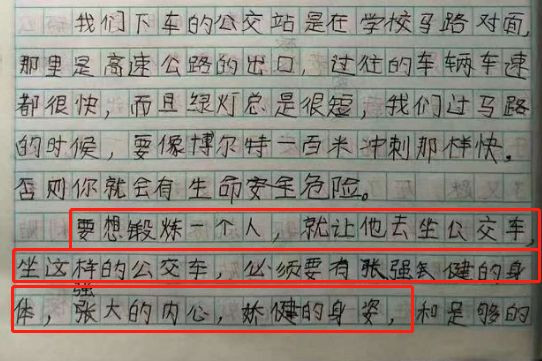 我们下车的公交站是在学校马路对面,
那里是高速公路的出口，过往的车辆车速
都很快，而且绿灯总是很短，我们过马路
的时候，要像博尔特一百米冲刺那样快。
否则你就会有生命安全危险。
要想锻炼一个人，就让他去坐公交车,
坐这样的公交车，必须要有张强健的身
强
体，大的内心，娇健的身姿，和足够的